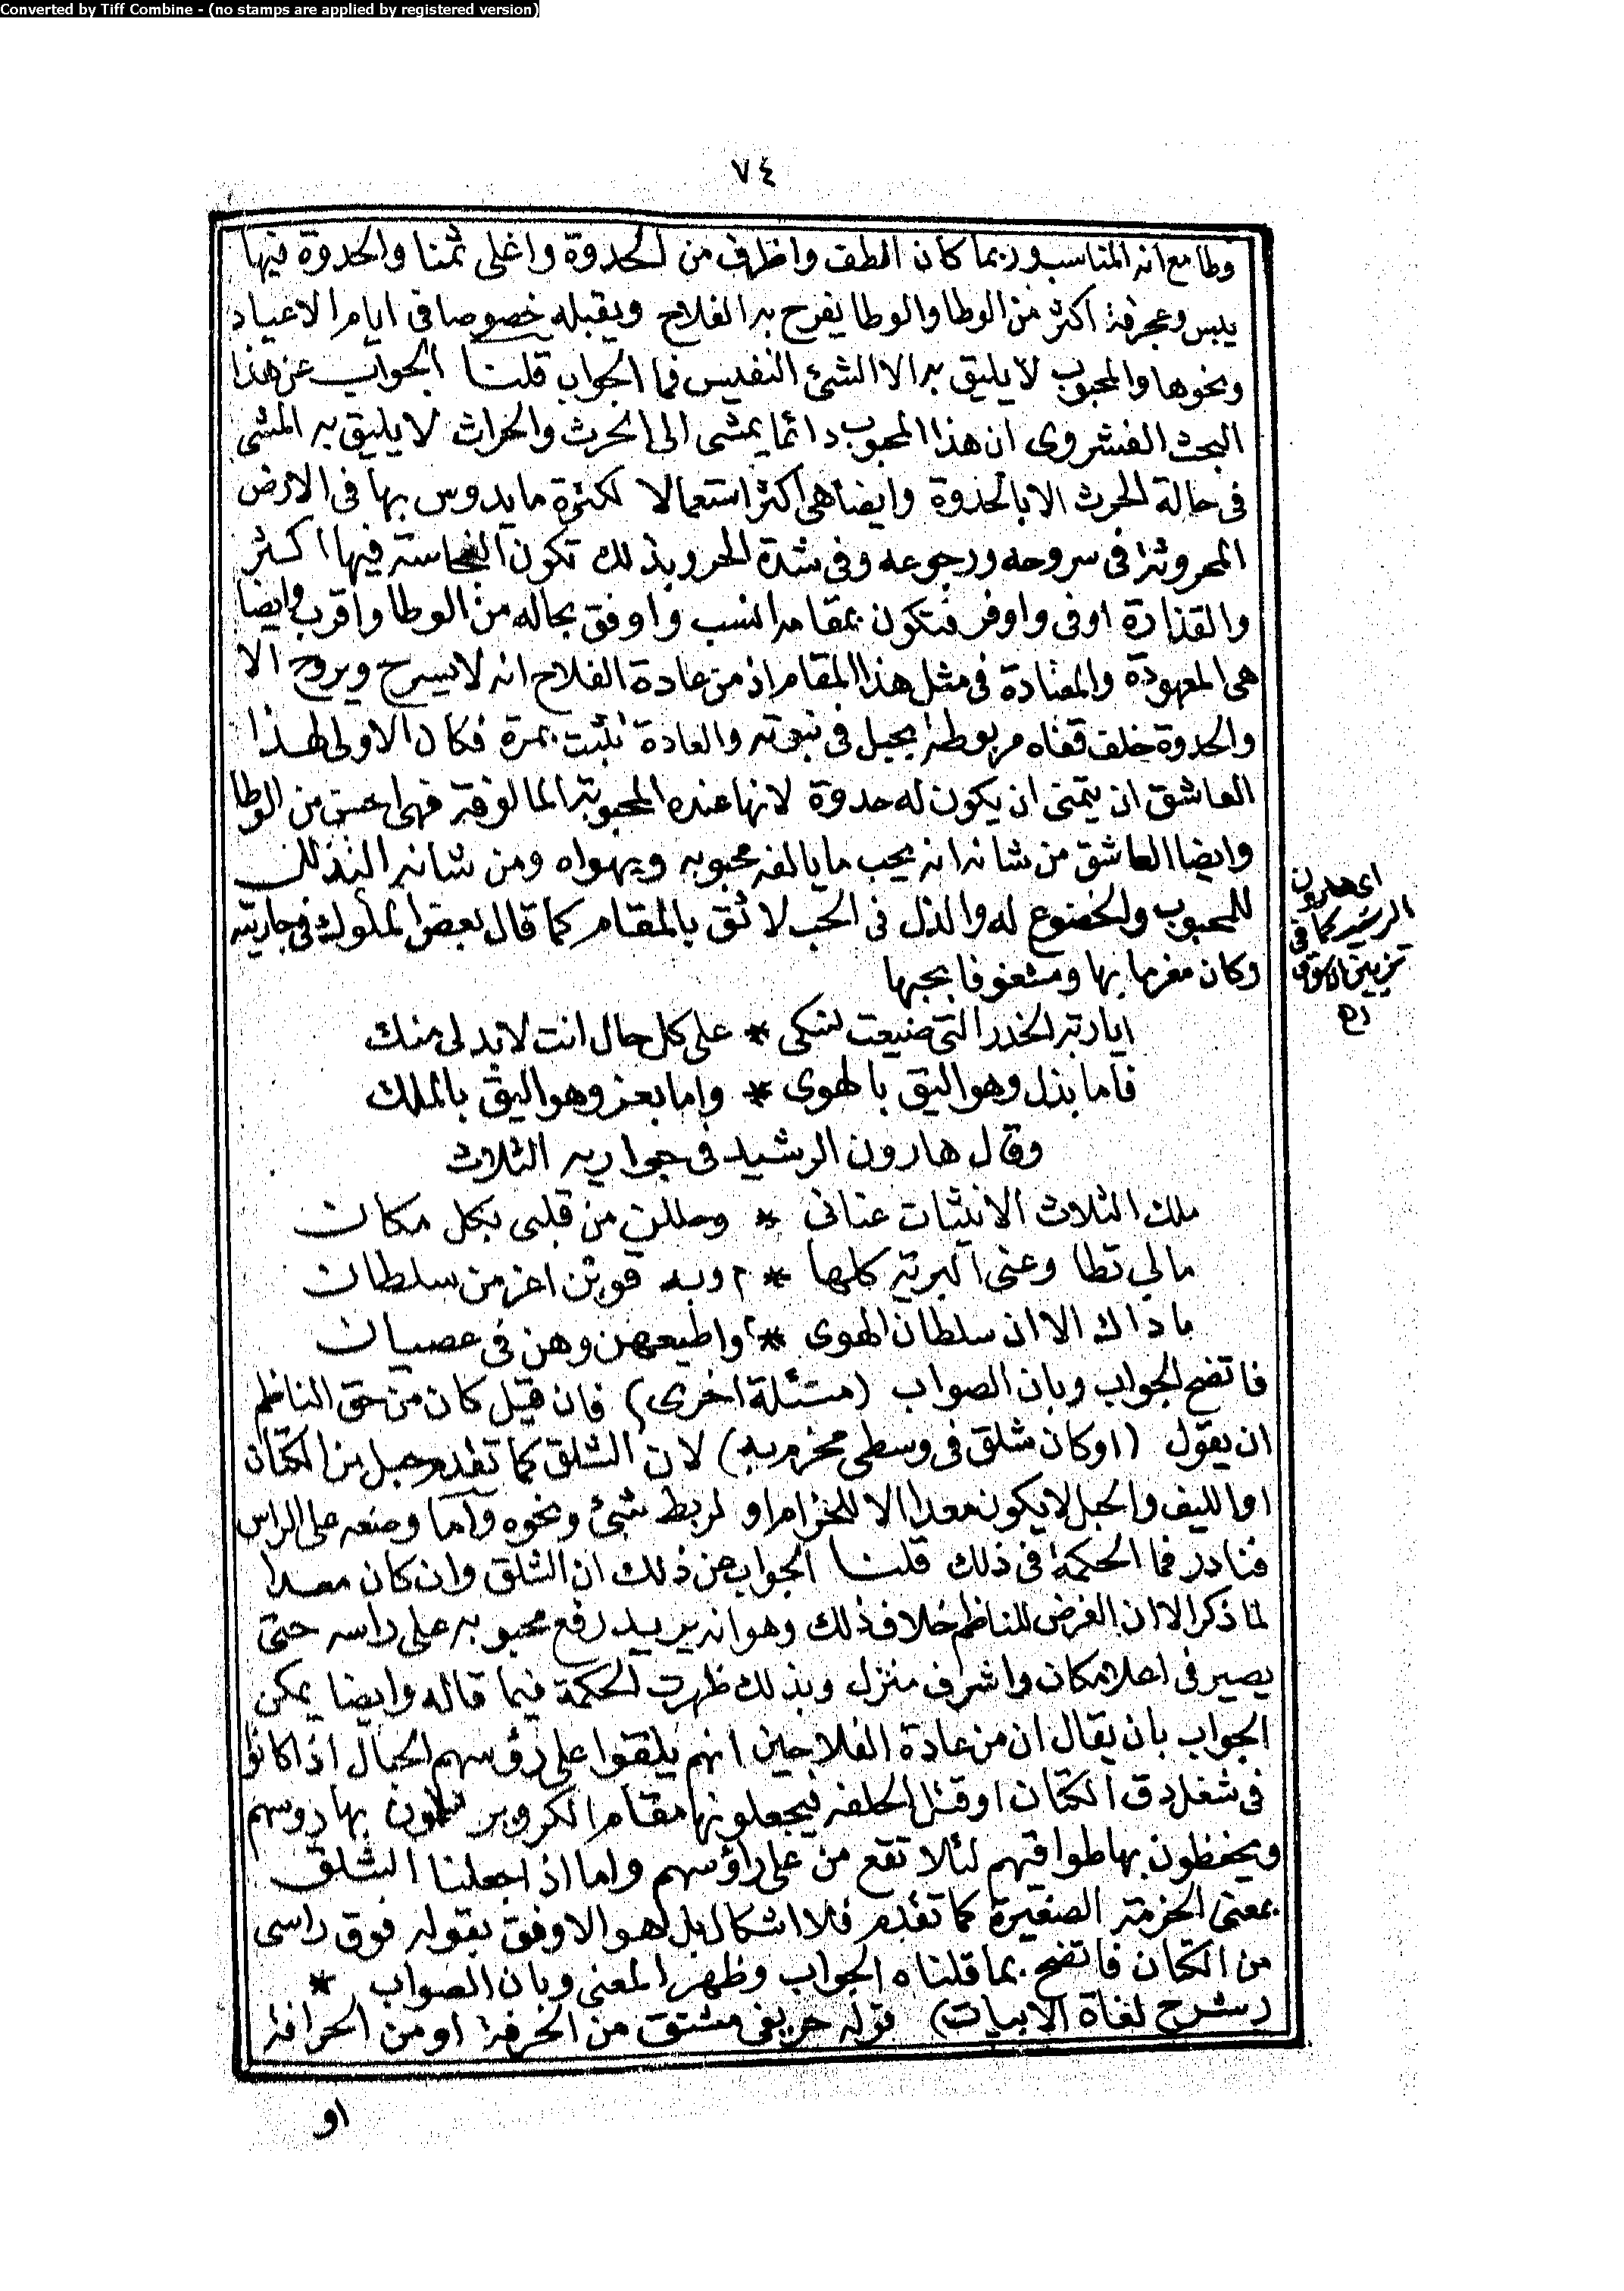 Converted by Tiff Combine - (no stamps are applied by registered version)
٧٤
وطا مع انه المناسب وربما كان الطف واظرف من الحدوة واغلى ثمنا والحدوة فيها
يبس وعجرفة اكثر من الوطا والوطا يفرح به الفلاح ويقبله خصوصا فى ايام الاعياد
ونحوها والمحبوب لا يليق به الا الشئ النفيس فما الجواب قلنا الجواب عن هذا
البحث الفشروى ان هذا المحبوب دائما يمشى الى الحرث والحراث لا يليق به المشى
فى حالة الحرث الا بالحدوة وايضا هى اكثر استعمالا لكثرة ما يدوس بها فى الارض
المحروثة فى سروحه ورجوعه وفى شدة الحر وبذلك تكون النجاسة فيها اكثر
والقذارة اوفى واوفر فتكون بمقامه انسب واوفق بحاله من الوطا واقرب وايضا
هى المعهودة والمعتادة فى مثل هذا المقام اذ من عادة الفلاح انه لا يسرح ويروح الا
والحدوة خلف قفاه مربوطة بحبل فى نبوته والعادة تثبت بمرة فكان الاولى لهذا
العاشق ان يتمنى ان يكون له حدوة لانها عنده المحبوبة المالوفة فهى احسن من الوطا
وايضا العاشق من شانه انه يحب ما يالفه محبوبه ويهواه ومن شانه التذلل
للمحبوب والخضوع له والذل فى الحب لائق بالمقام كما قال بعض الملوك فى جاريته
وكان مغرما بها ومشغوفا بحبها
اى هرون
الرشيد كما فى
تزيين الاسواق
اهـ
ايا ربة الخدر التى ضيعت نسكى * على كل حال انت لابد لى منك
فاما بذل وهو اليق بالهوى * واما بعز وهو اليق بالملك
وقال هارون الرشيد فى جواريه الثلاث
ملك الثلاث الانيثات عنانى * وحللن من قلبى بكل مكان
مالي تطاوعنى البرية كلها * وبه قوين اعز من سلطان
ما ذاك الا ان سلطان الهوى * واطيعهن وهن فى عصيان
فاتضح الجواب وبان الصواب (مسئلة اخرى) فان قيل كان من حق الناظم
ان يقول (او كان شلق فى وسطى محزم به) لان الشلق كما تقدم حبل من الكتان
او الليف والحبل لا يكون معدا الا للحزام او لربط شئ ونحوه واما وضعه على الراس
فنادر فما الحكمة فى ذلك قلنا الجواب عن ذلك ان الشلق وان كان معدا
لما ذكر الا ان الغرض للناظم خلاف ذلك وهو انه يريد رفع محبوبه على راسه حتى
يصير فى اعلا مكان واشرف منزل وبذلك ظهرت الحكمة فيما قاله وايضا يمكن
الجواب بان يقال ان من عادة الفلاحين انهم يلقوا على رؤسهم الحبال اذا كانوا
فى شغل دق الكتان او فتل الحلفه فيجعلونها مقام الكر وير بها روسهم
ويحفظون بها طواقيهم لئلا تقع من على راؤسهم واما اذا جعلنا الشلق
بمعنى الحزمة الصغيرة كما تقدم فلا اشكال بل هو الاوفق بقوله فوق راسى
من الكتان فاتضح بما قلناه الجواب وظهر المعنى وبان الصواب *
(شرح لغاة الابيات) قوله حريفى مشتق من الحرفة او من الحرافة
او